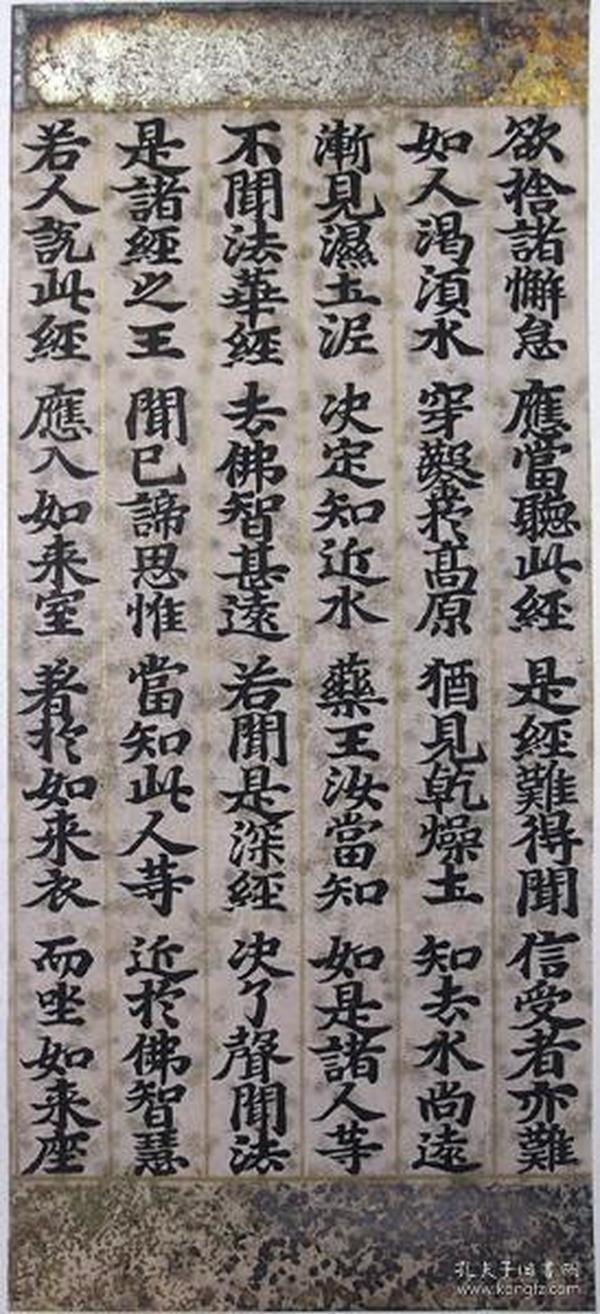 欲捨諸懈怠 應當聽此經 是經難得聞 信受者亦難
如人渴湏水 穿鑿於髙原 猶見乾燥土 知去水尚遠
漸見濕土泥 决定知近水 藥王汝當知 如是諸人等
不聞法華經 去佛智甚遠 若聞是深經 决了聲聞法
是諸經之王 聞已諦思惟 當知此人等 近於佛智慧
若人說此經 應入如来室 著於如来衣 而坐如来座
孔夫子旧书网
www.kongfz.com